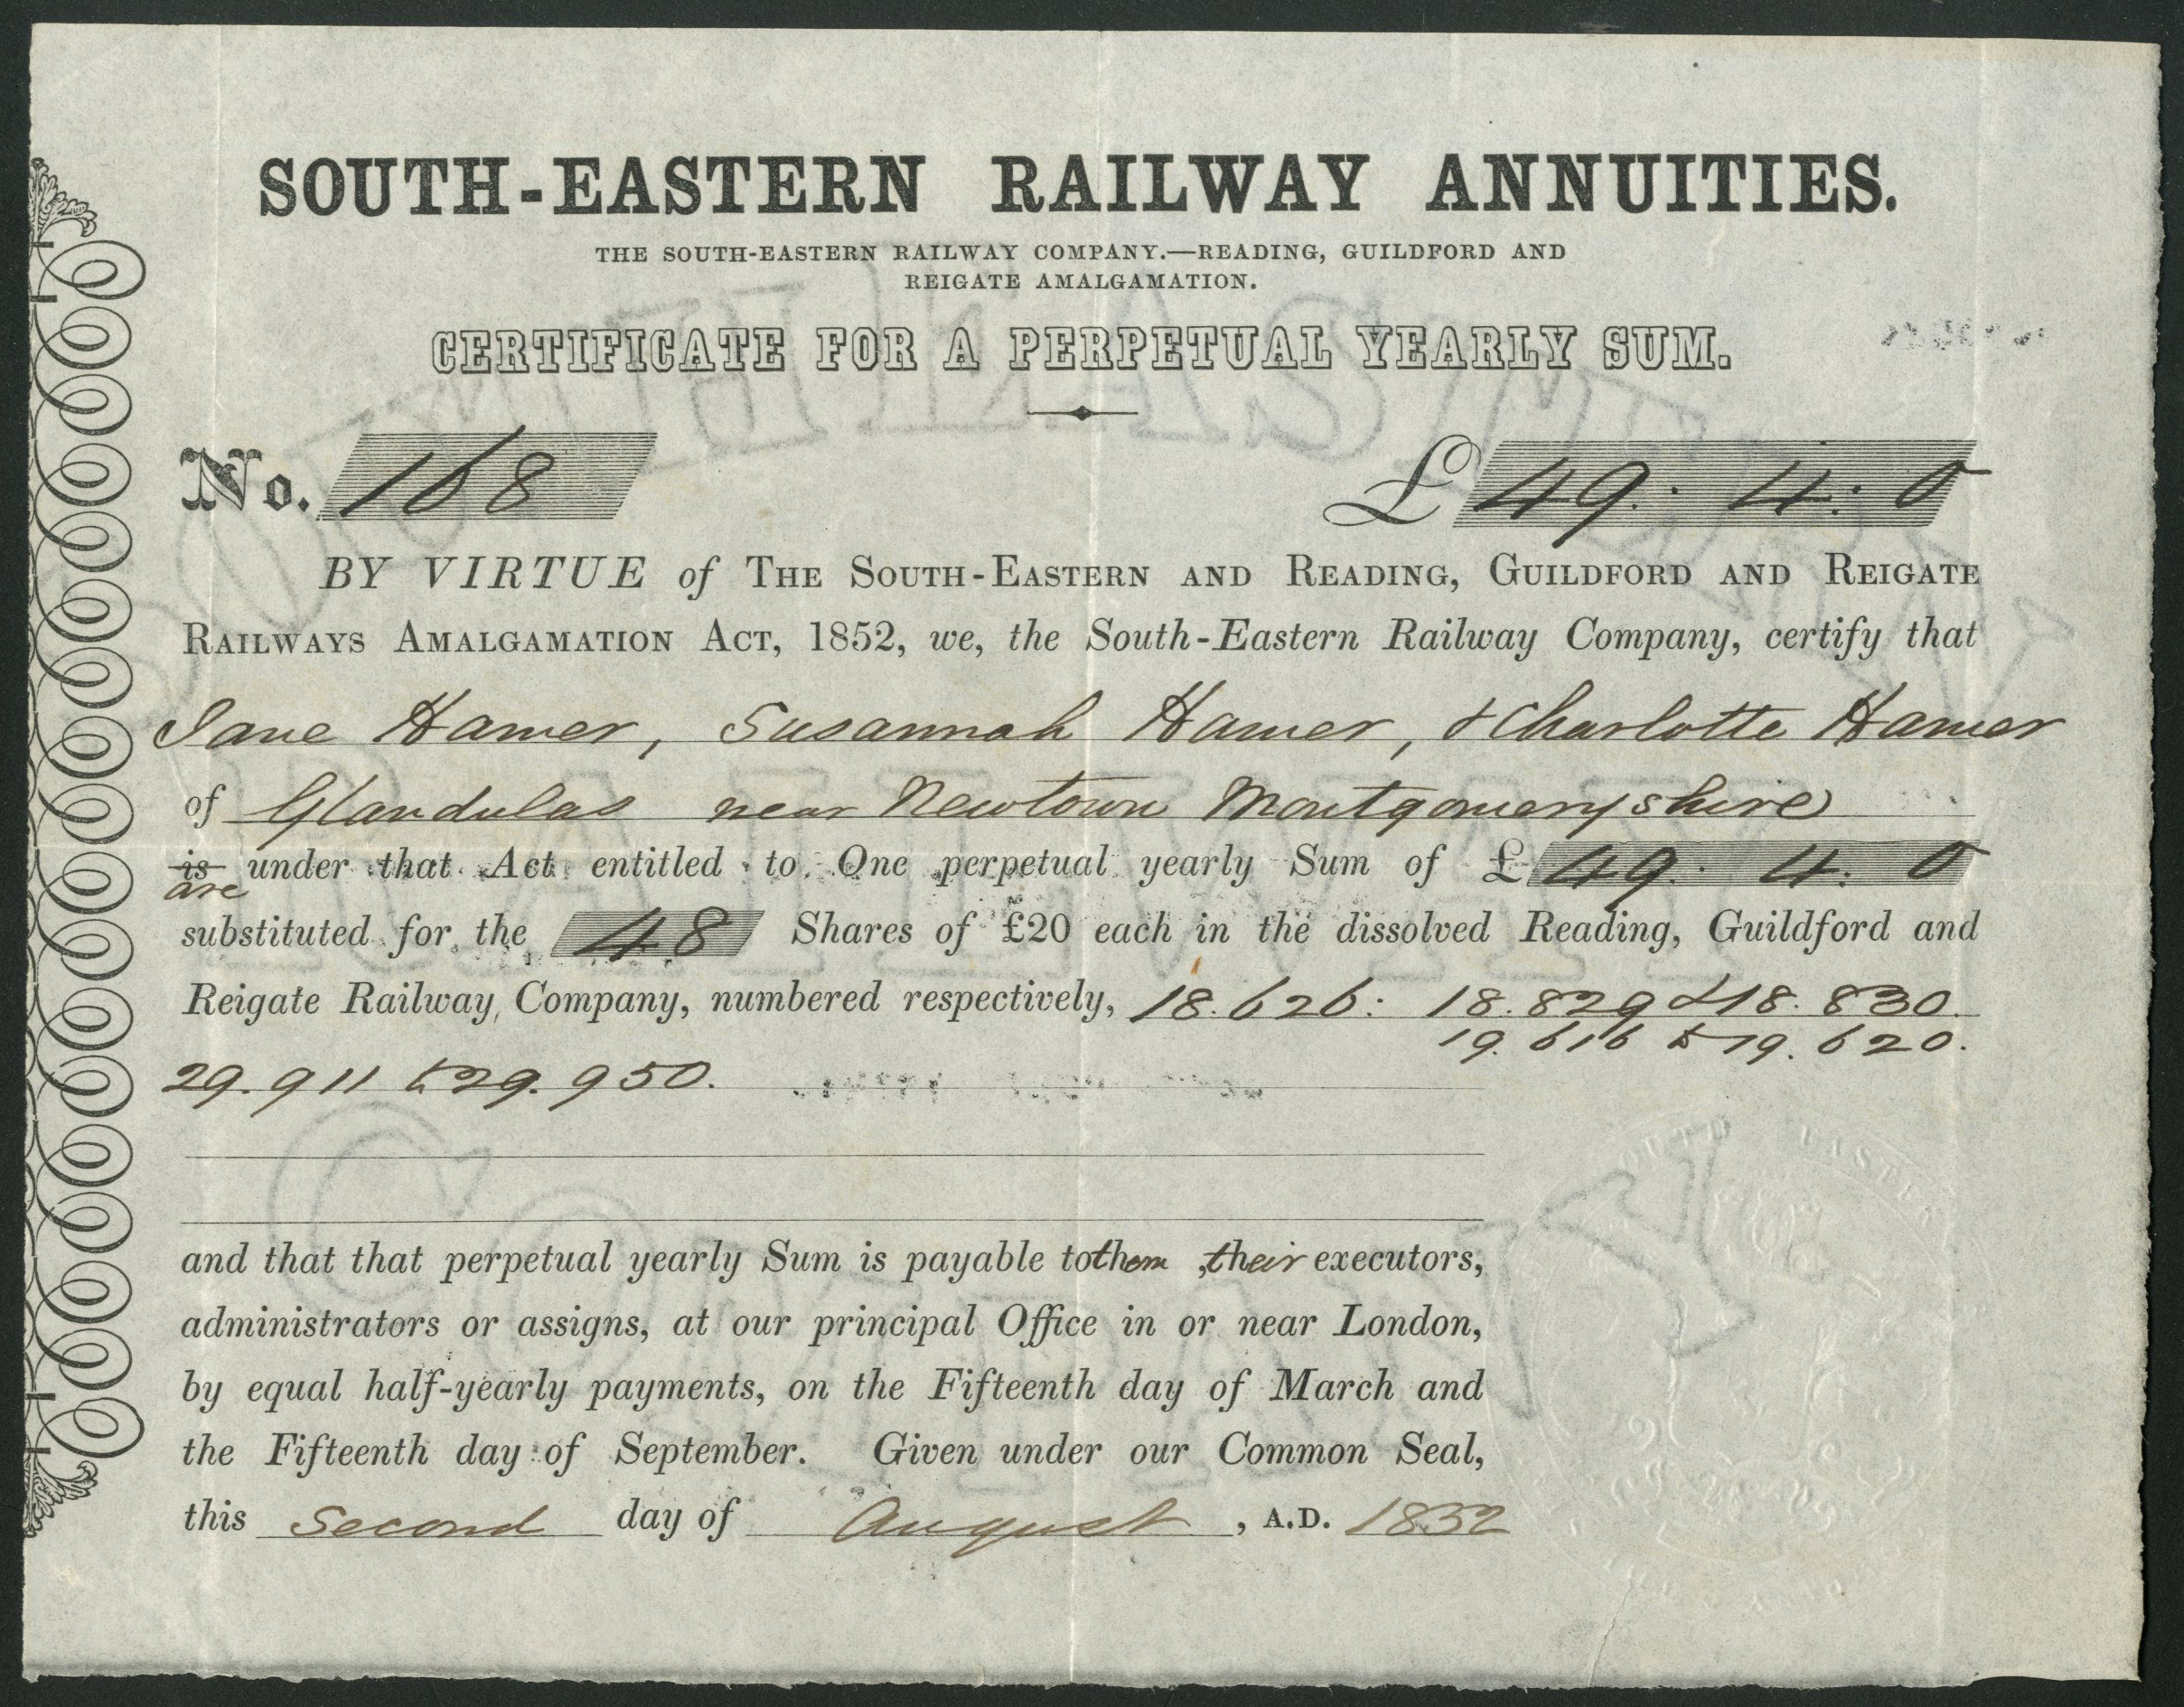 SOUTH-EASTERN RAILWAY ANNUITIES.
THE SOUTH-EASTERN RAILWAY COMPANY.—READING, GUILDFORD AND
REIGATE AMALGAMATION.
CERTIFICATE FOR A PERPETUAL YEARLY SUM.
No. 168 £49. 4. 0
BY VIRTUE of THE SOUTH-EASTERN AND READING, GUILDFORD AND REIGATE
RAILWAYS AMALGAMATION ACT, 1852, we, the South-Eastern Railway Company, certify that
Jane Hamer, Susannah Hamer, & Charlotte Hamer
of Glandulas near Newtown Montgomeryshire
is under that Act entitled to One perpetual yearly Sum of £49. 4. 0
are
substituted for the 48 Shares of £20 each in the dissolved Reading, Guildford and
Reigate Railway Company, numbered respectively, 18.626: 18.829 & 18.830.
19.616 to 19.620.
29.911 to 29.950.
and that that perpetual yearly Sum is payable to them, their executors,
administrators or assigns, at our principal Office in or near London,
by equal half-yearly payments, on the Fifteenth day of March and
the Fifteenth day of September. Given under our Common Seal,
this Second day of August, A.D. 1852